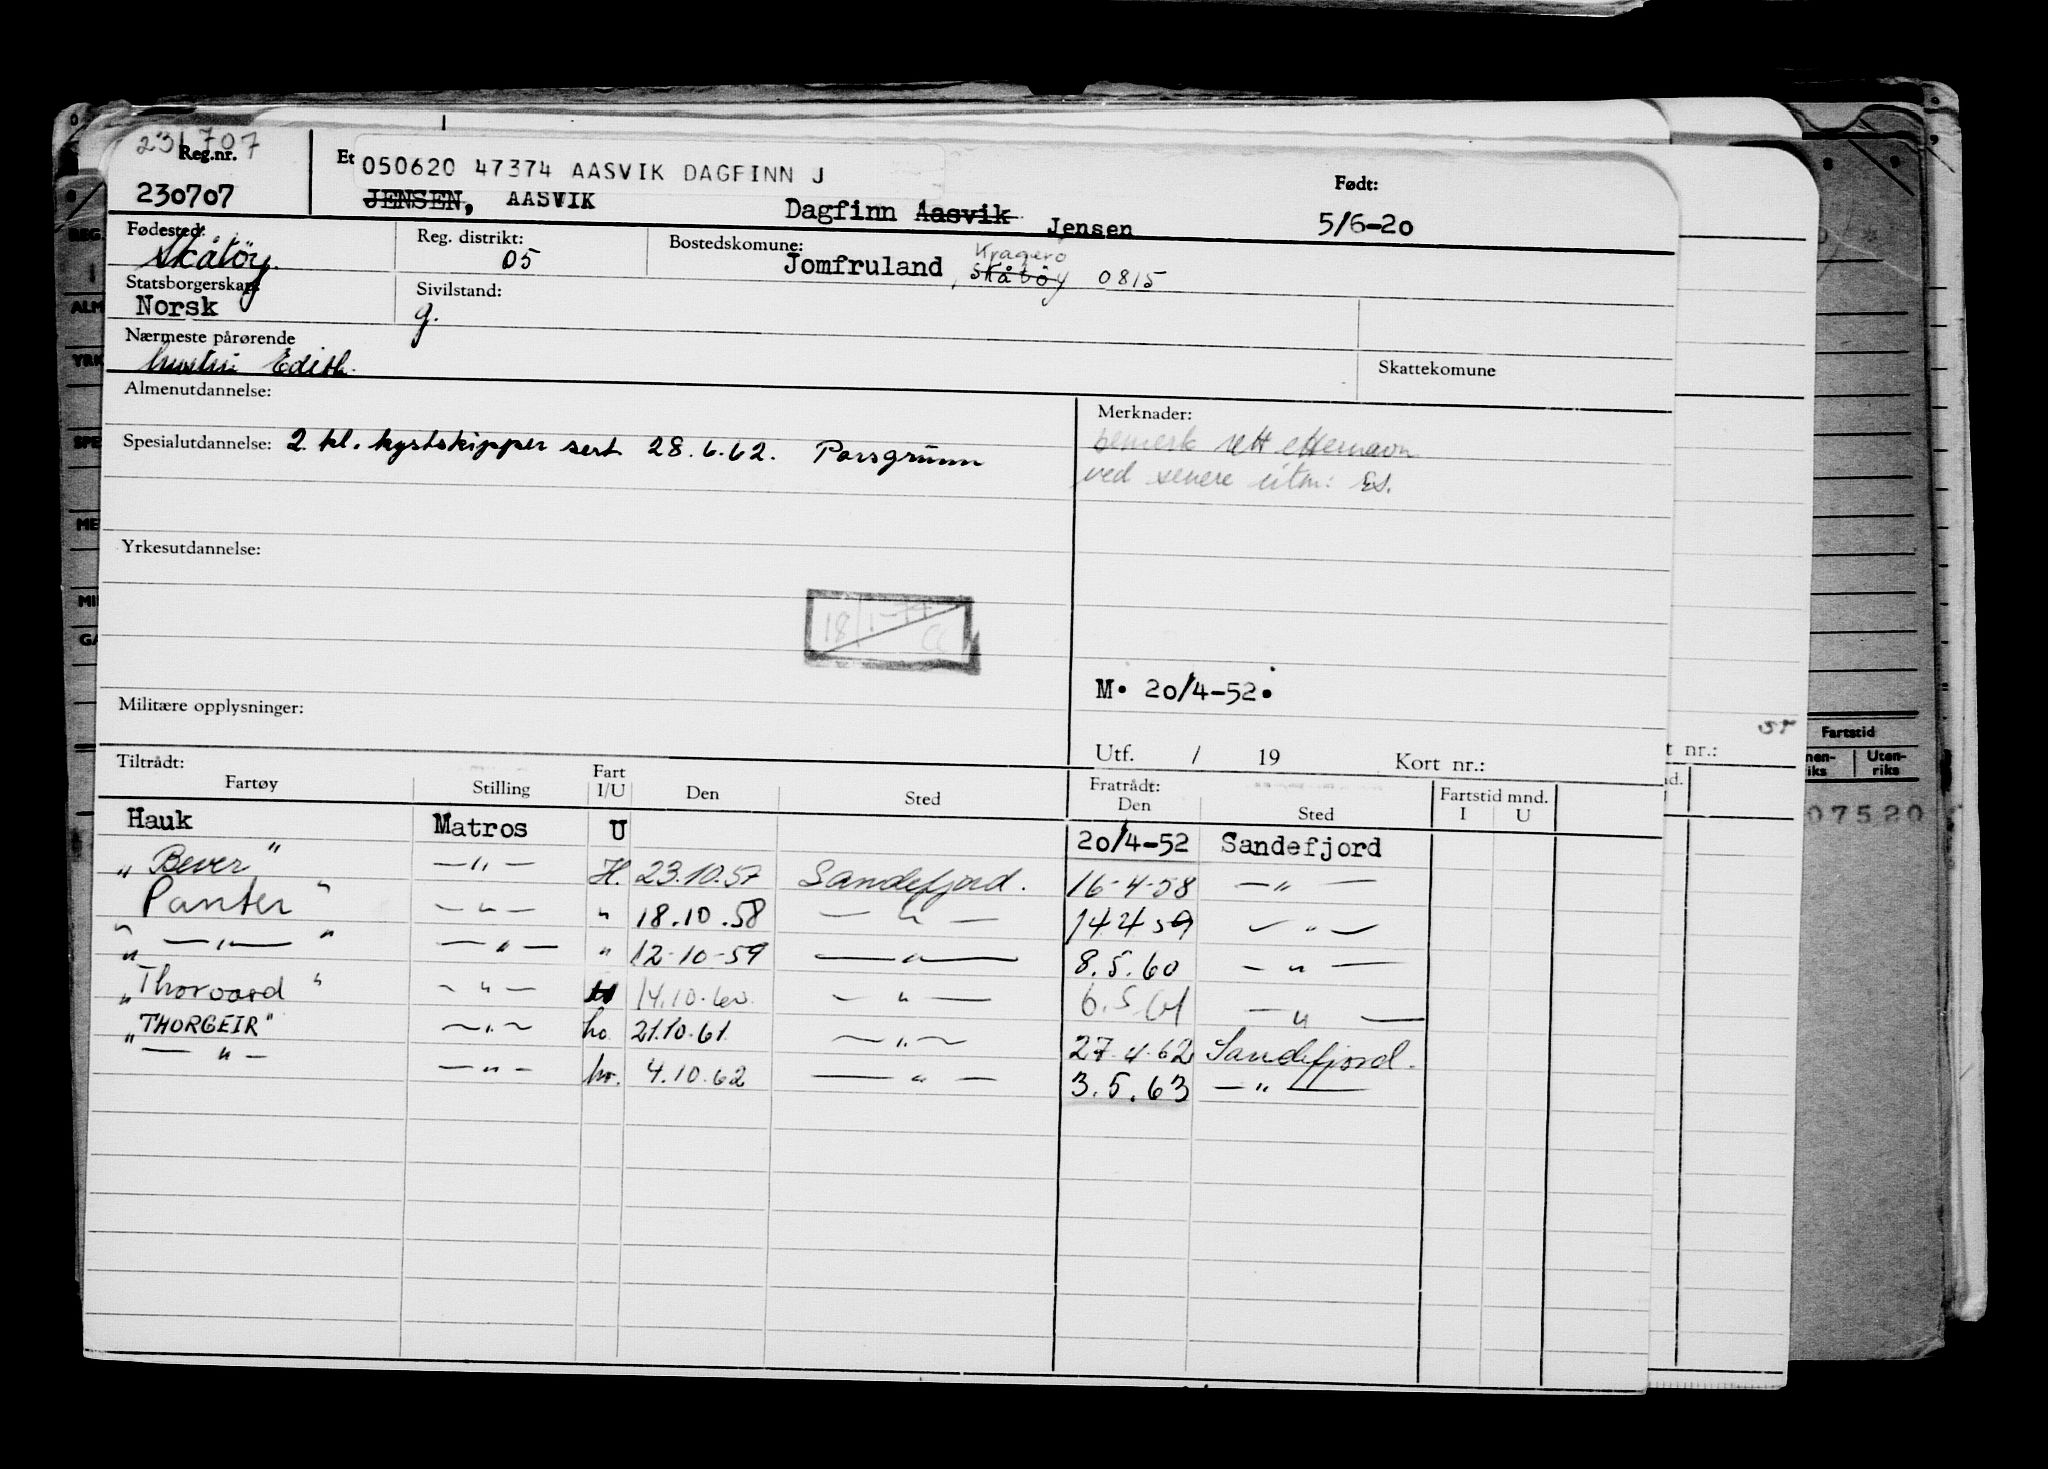 231707
Reg.nr.
230707
Et
050620 47374 AASVIK DAGFINN J
JENSEN, AASVIK
Dagfinn Aasvik Jensen
Født:
5/6-20
Fødested:
Skåtöy.
Reg. distrikt:
05
Bostedskomune:
Jomfruland, Skåtöy Kragerö 0815
Statsborgerskap:
Norsk
Sivilstand:
g.
Nærmeste pårørende
hustru Edith.
Skattekomune
Almenutdannelse:
Merknader:
bemerk rett etternavn
ved senere utm: Es.
Spesialutdannelse: 2 kl. kystskipper sert 28.6.62. Porsgrunn
Yrkesutdannelse:
18/1-77
M. 20/4-52.
Militære opplysninger:
Utf. / 19 Kort nr.:
Tiltrådt:
Fartøy Stilling Fart I/U Den Sted Fratrådt: Den Sted Fartstid mnd. I U
Hauk Matros U 20/4-52 Sandefjord
"Bever" —"— H. 23.10.57 Sandefjord. 16-4-58 —"—
"Panter" —"— " 18.10.58 —"— 14 4 59 —"—
"—"—" —"— " 12-10-59 —"— 8.5.60 —"—
"Thorvard" —"— 14.10.60 —"— 6.5.61 —"—
"THORGEIR" —"— ho 21.10.61 —"— 27.4.62 Sandefjord.
"—"— —"— ho. 4.10.62 —"— 3.5.63 —"—
REG.
ALM
YRK
SPE
ME
MI
GA
8 9
57
t nr.:
nd.
Fartstid
nen-
iks
Uten-
riks
07520